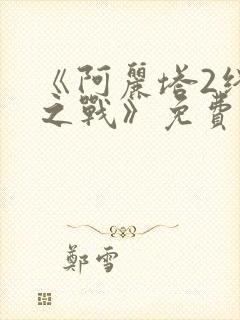 《阿麗塔2終
之戰》免費
鄭雪